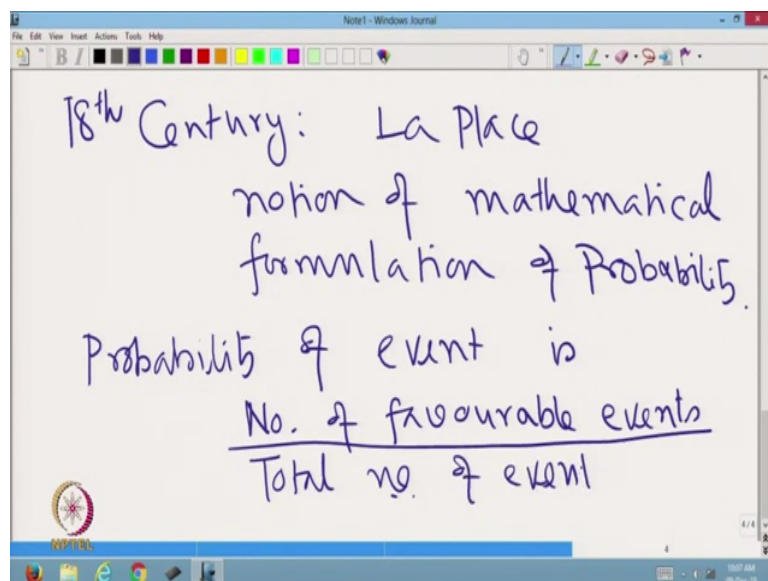 Note1 - Windows Journal
File Edit View Insert Actions Tools Help
18th Century: La Place
notion of mathematical
formulation of Probability.
Probability of event is
No. of favourable events
Total no. of event
NPTEL
4/4
4
10:07 AM